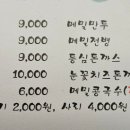 9,000 메밀만두
9,000 메밀전병
9,000 등심돈까스
10,000 눈꽃치즈돈까
6,000 메밀콩국수(
기 2,000원, 사리 4,000원